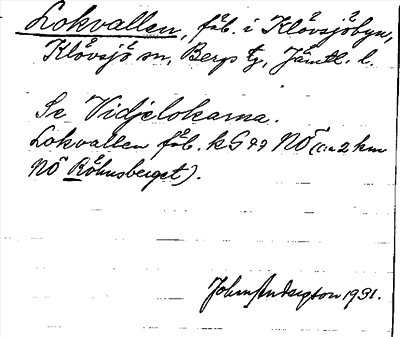 Lokvallen, fäb. i Klövsjöbyn,
Klövsjö sn, Bergs tg, Jämtl. l.
Se Vidjelokarna.
Lokvallen fäb. kG 97 NÖ (c:a 2 km
NÖ Röhnsberget).
John Anderson 1931.